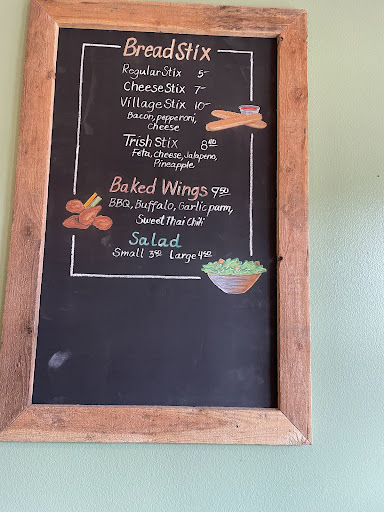 BreadStix
Regular Stix 5-
Cheese Stix 7-
Village Stix 10-
Bacon, pepperoni,
cheese
Trish Stix 8
Feta, cheese, Jalapeno,
Pineapple
Baked Wings 9.50
BBQ, Buffalo, Garlic parm,
Sweet Thai Chili
Salad
Small 3.50 Large 4.50